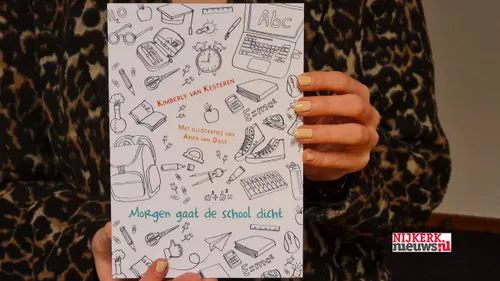 Abc
KIMBERLY VAN KESTEREN
E=mc²
MET ILLUSTRATIES VAN
ARJEN VAN DIEST
a²+b²
Morgen gaat de school dicht
E=mc²
NIJKERK
nieuws.nl